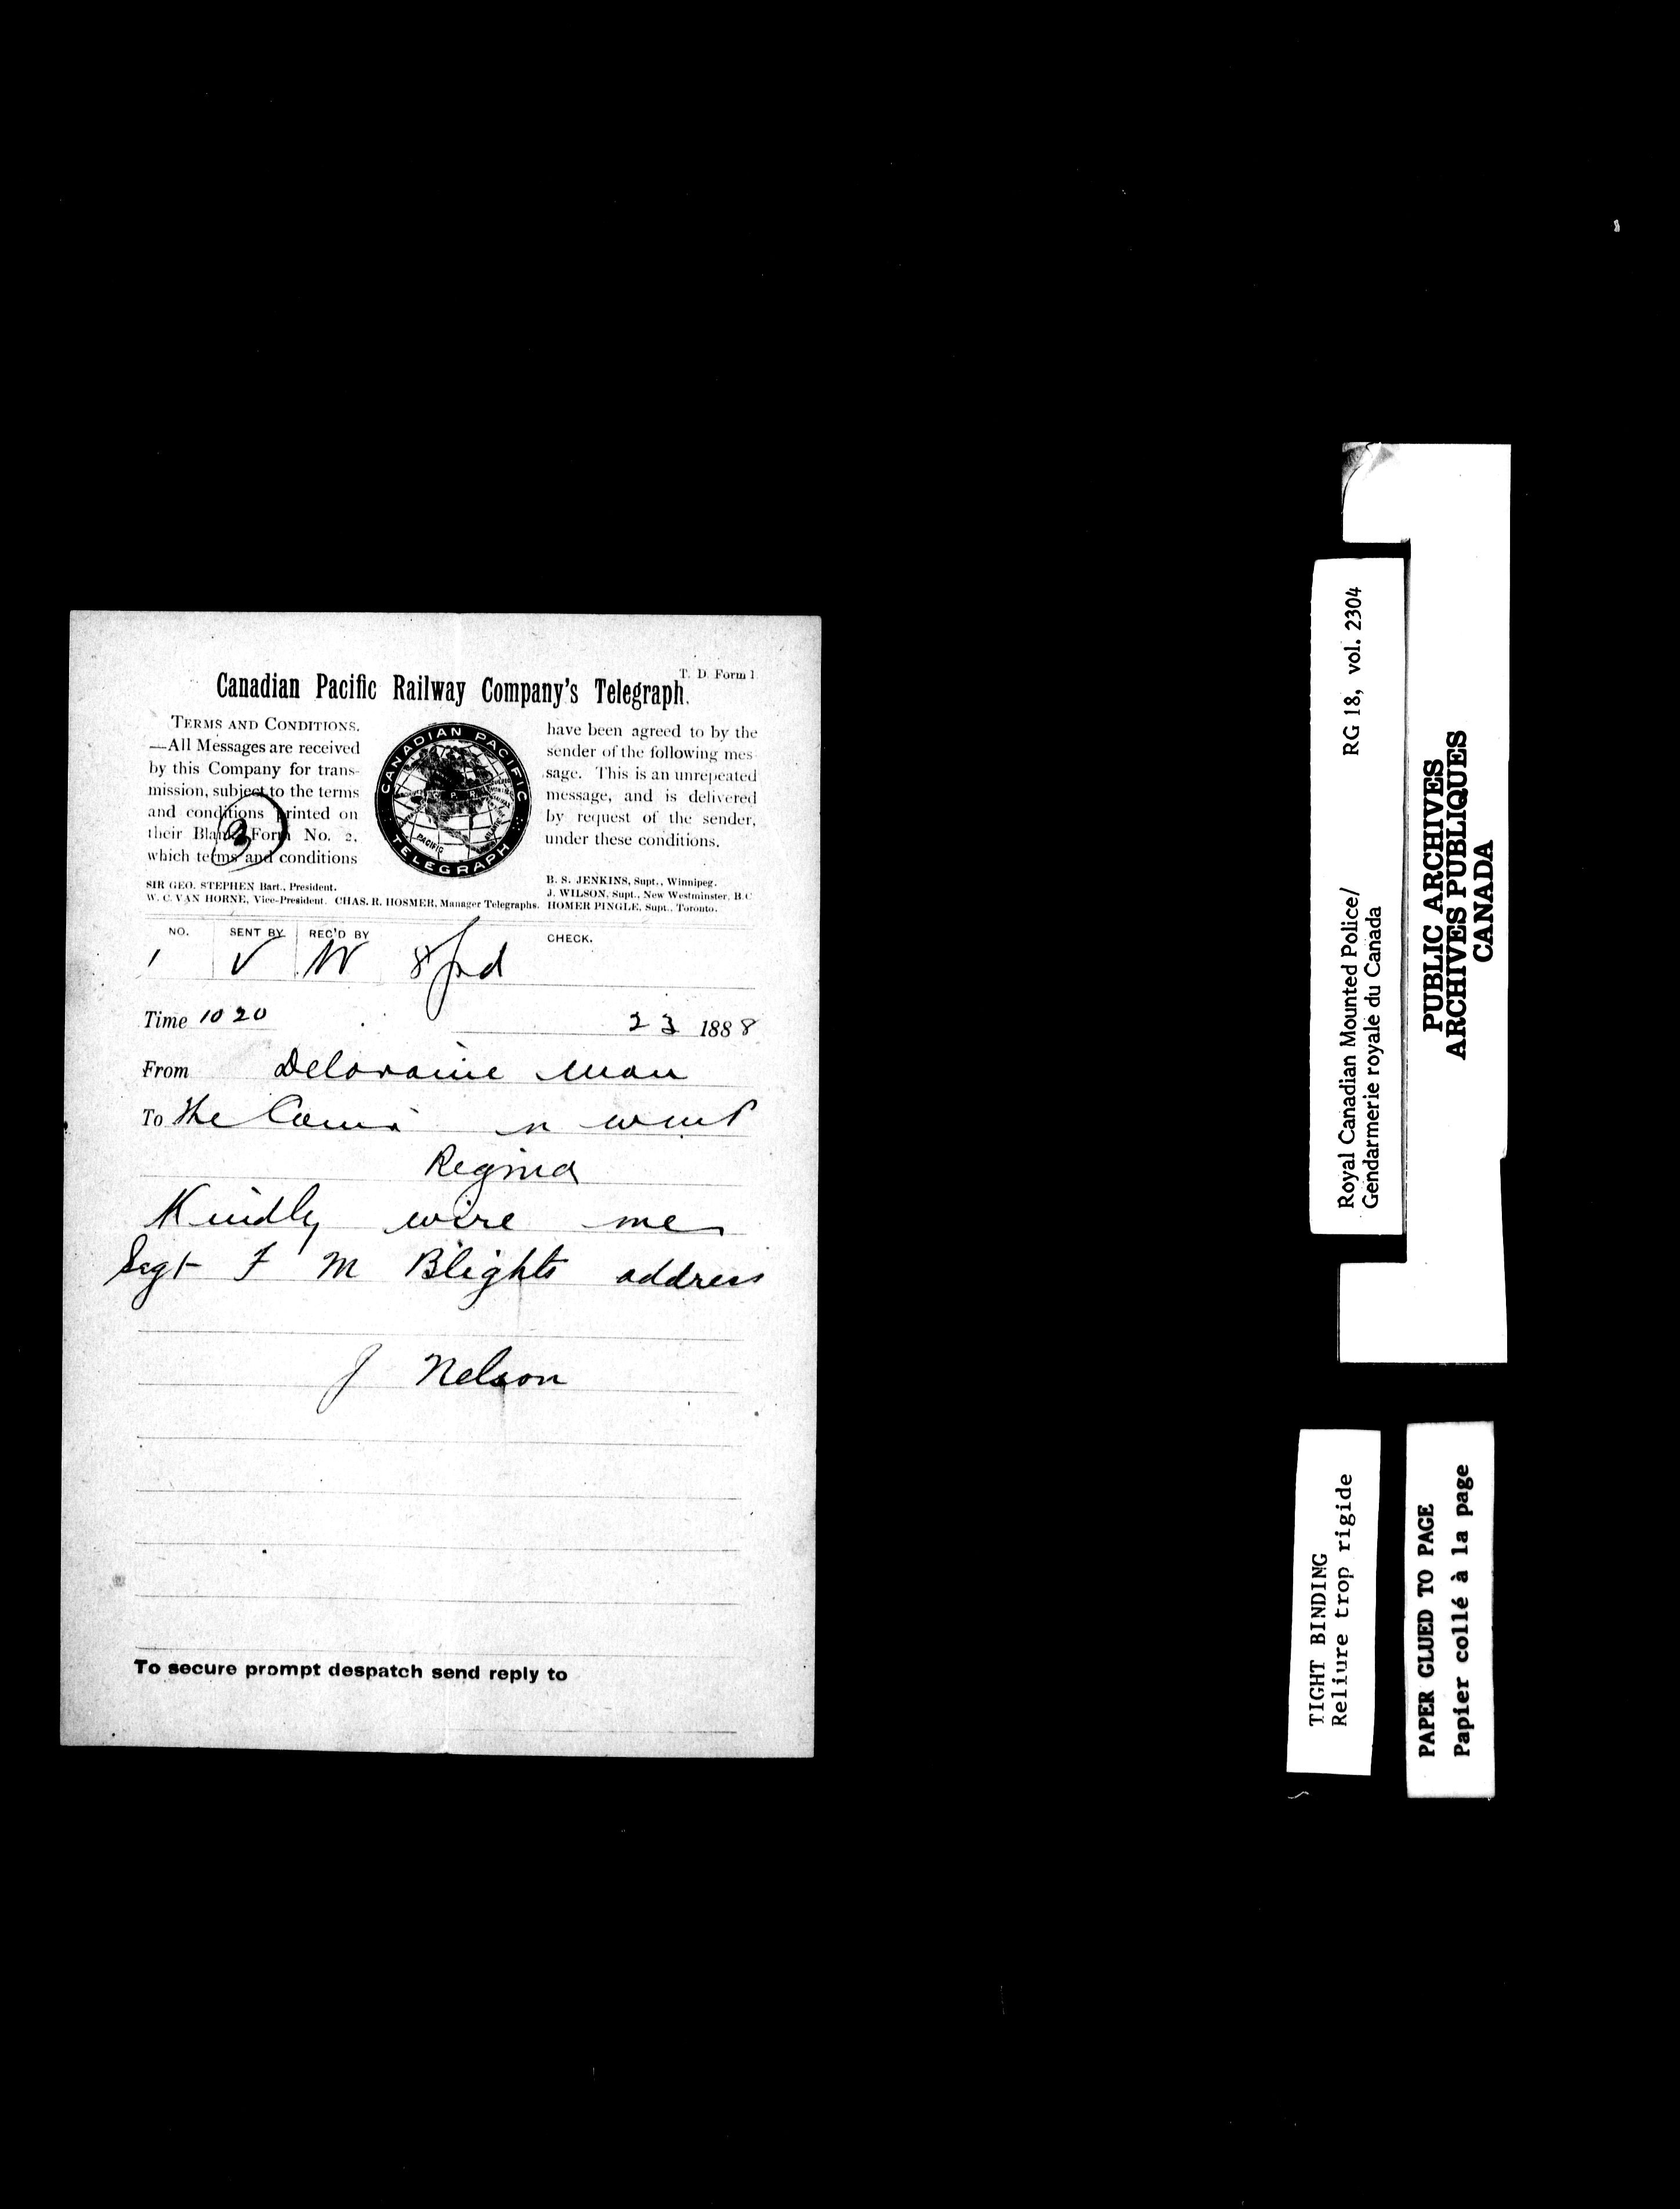 T. D. Form 1.
Canadian Pacific Railway Company's Telegraph.
TERMS AND CONDITIONS.
—All Messages are received
by this Company for trans-
mission, subject to the terms
and conditions printed on
their Blank Form No. 2.
which terms and conditions
3
CANADIAN PACIFIC
C. P. R.
PACIFIC
TELEGRAPH
have been agreed to by the
sender of the following mes
sage. This is an unrepeated
message, and is delivered
by request of the sender,
under these conditions.
SIR GEO. STEPHEN Bart., President.
W. C. VAN HORNE, Vice-President. CHAS. R. HOSMER, Manager Telegraphs.
B. S. JENKINS, Supt., Winnipeg.
J. WILSON, Supt., New Westminster, B.C
HOMER PINGLE, Supt., Toronto.
NO. SENT BY REC'D BY CHECK.
1 V W 8 pd
Time 10 20 23 1888
From Deloraine Man
To The Comr n w m P
Regina
Kindly wire me
Sgt F M Blights address
J Nelson
To secure prompt despatch send reply to
Royal Canadian Mounted Police/ RG 18, vol. 2304
Gendarmerie royale du Canada
PUBLIC ARCHIVES
ARCHIVES PUBLIQUES
CANADA
TIGHT BINDING
Reliure trop rigide
PAPER GLUED TO PAGE
Papier collé à la page